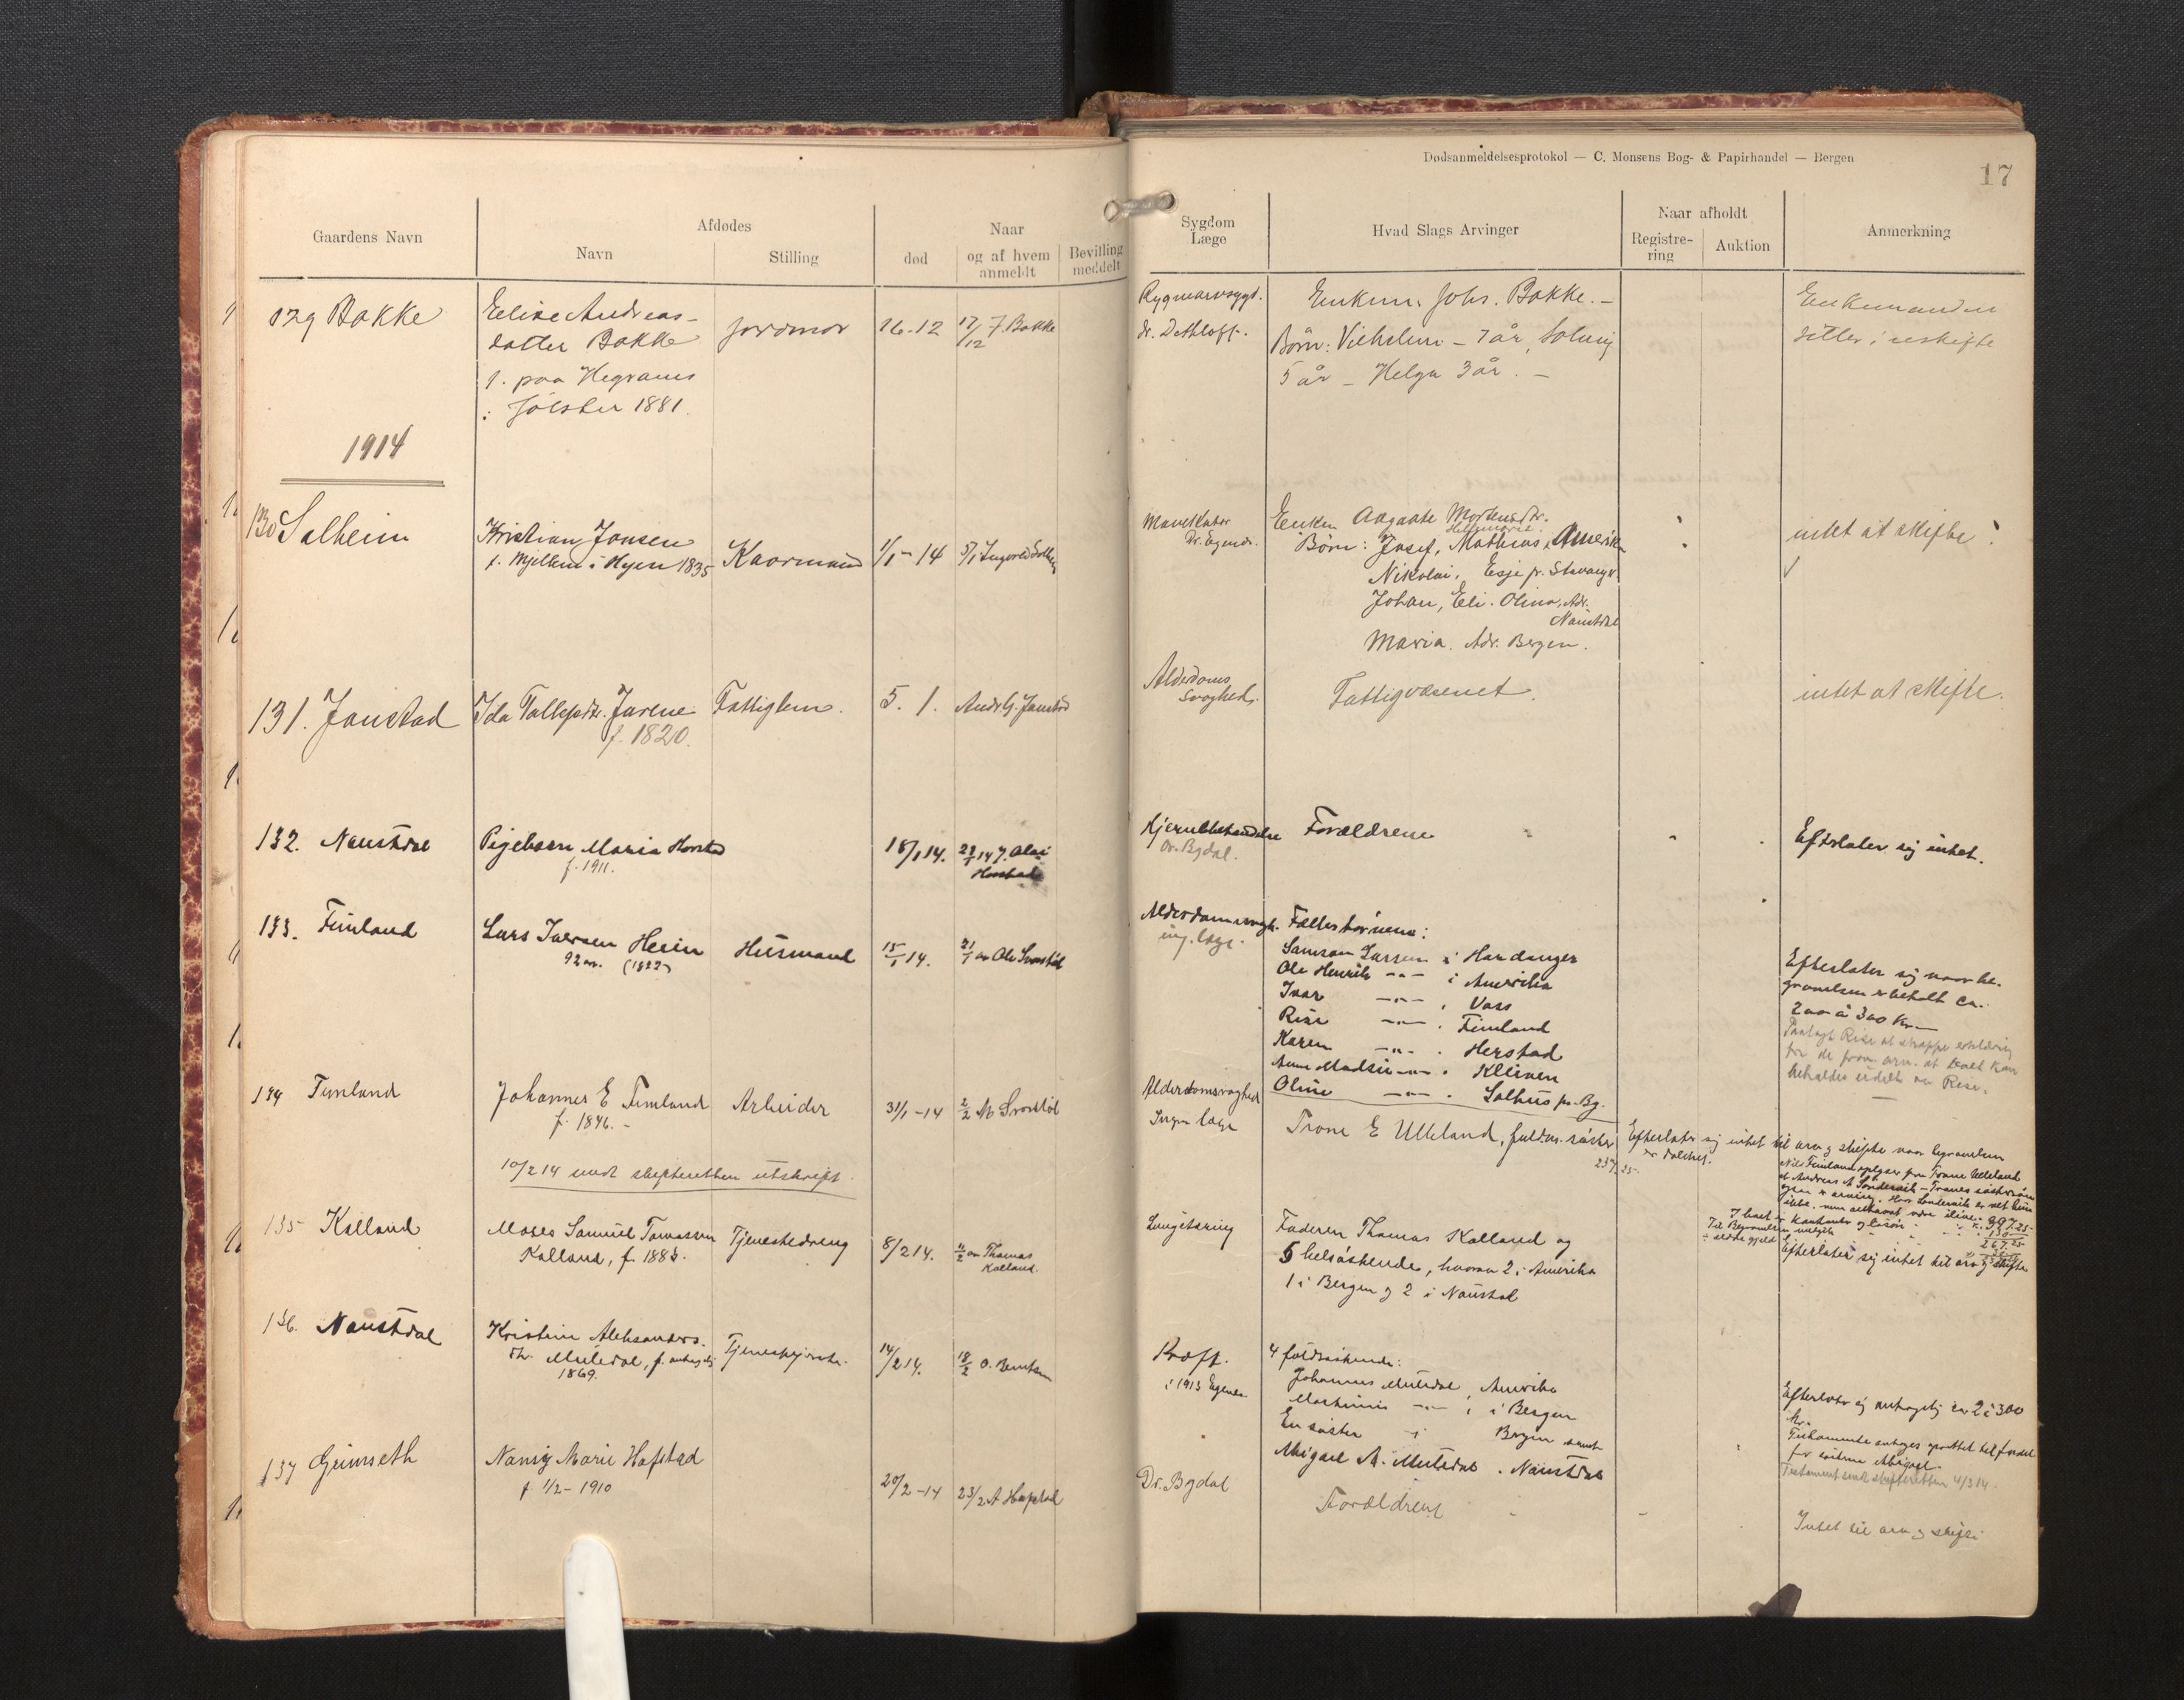 Dødsanmeldelsesprotokol — C. Monsens Bog- & Papirhandel — Bergen
17
Gaardens Navn
Afdødes
Navn
Stilling
Naar
død
og af hvem anmeldt
Bevilling meddelt
Sygdom
Læge
Hvad Slags Arvinger
Naar afholdt
Registre-
ring
Auktion
Anmerkning
129 Bakke
Elise Andreas-
datter Bakke
f. paa Hegrenes
i Jølster 1881.
Jordmor
16-12
17/12 J. Bakke
Rygmarvsygd.
dr. Dethloff.
Enkem. Johs. Bakke. -
Børn: Vilhelm - 7 år, Solveig
5 år - Helga 3 år. -
Enkemanden
sitter i uskifte
1914
130 Solheim
Kristian Jonsen
f. Mjellem i Hyen 1835
Kaarmand
1/1 - 14
5/1 Ingvald Solheim
Mavekatar
Dr. Egenæs.
Enken Aagaate Mortensdtr.
Børn: Josef, Mathias, Amerika
Nikolai, Esje pr. Stavanger
Johan, Eli. Olina, Adr.
Naustdal
Maria. Adr. Bergen.
intet at skifte.
131. Jonstad
Ida Tollefsdtr. Jarene
f. 1820.
Fattiglem.
5. 1.
Andr. G. Jonstad
Alderdoms
Svaghed.
Fattigvæsenet.
intet at skifte.
132. Naustdal
Pigebarn Maria Horstad
f. 1911.
18/1 14.
22/1 14 J. Olai
Horstad
Hjernebetændelse
Dr. Bydal.
Forældrene
Efterlater sig intet.
133. Fimland
Lars Iversen Heien
92 år. (1822)
Husmand
15/1 14.
21/1 av Ole Svorstøl
Alderdomssvagh.
ing. læge.
Fællesbørnene:
Samson Larsen i Hardanger
Ole Henrik -"- i Amerika
Ivar -"- i Voss
Rise -"- . Fimland
Karen -"- . Herstad
Anne Madsie -"- . Kleiven
Oline -"- . Salhus pr. Bg.
Efterlater sig naar be-
gravelsen er betalt ca.
200 à 300 Kr. -
Paalagt Rise at skaffe erklæring
fra de frav. arv. at boet kan
beholdes udelt av Rise.
134 Fimland
Johannes E Fimland
f. 1846. -
Arbeider
31/1 - 14
2/2 M Svorstøl
Alderdomsvaghed
Ingen læge
Trone E Ulleland, fuldm. søster
Efterlater sig intet til arv og skifte naar begravelsen
er dækket.
Nils Fimland oplyser paa Trone Ulleland
at Andreas A Søndervik - Trones søstersøn
ogsaa er arving.
10/2 14 sendt skifteretten utskrift.
135 Kalland
Moses Samuel Tomassen
Kalland, f. 1883.
Tjenestedreng
8/2 14.
11/2 av Thomas
Kalland.
Lungetæring
Faderen Thomas Kalland og
5 helsøskende, hvorav 2 i Amerika
1 i Bergen og 2 i Naustdal
Efterlater sig intet til arv og skifte
136. Naustdal
Kristine Aleksanders-
dtr. Muledal, f. antagelig
1869.
Tjenestepige
14/2 14.
18/2 O. Berntsen
Kræft.
i 1913 Egenæs
4 fuldsøskende:
Johannes Muledal, Amerika
Martinus -"- i Bergen
En søster i Bergen samt
Abigael A. Muledal . Naustdal
Efterlater sig antagelig ca 2 à 300
kr.
Testamente antages oprettet til fordel
for søsteren Abigael.
Testament sendt skifteretten 4/3 14.
137 Grimseth
Nansy Marie Hafstad
f 1/2 - 1910
20/2 - 14
23/2 A Hafstad
Dr. Bydal
Forældrene
Intet til arv og skifte